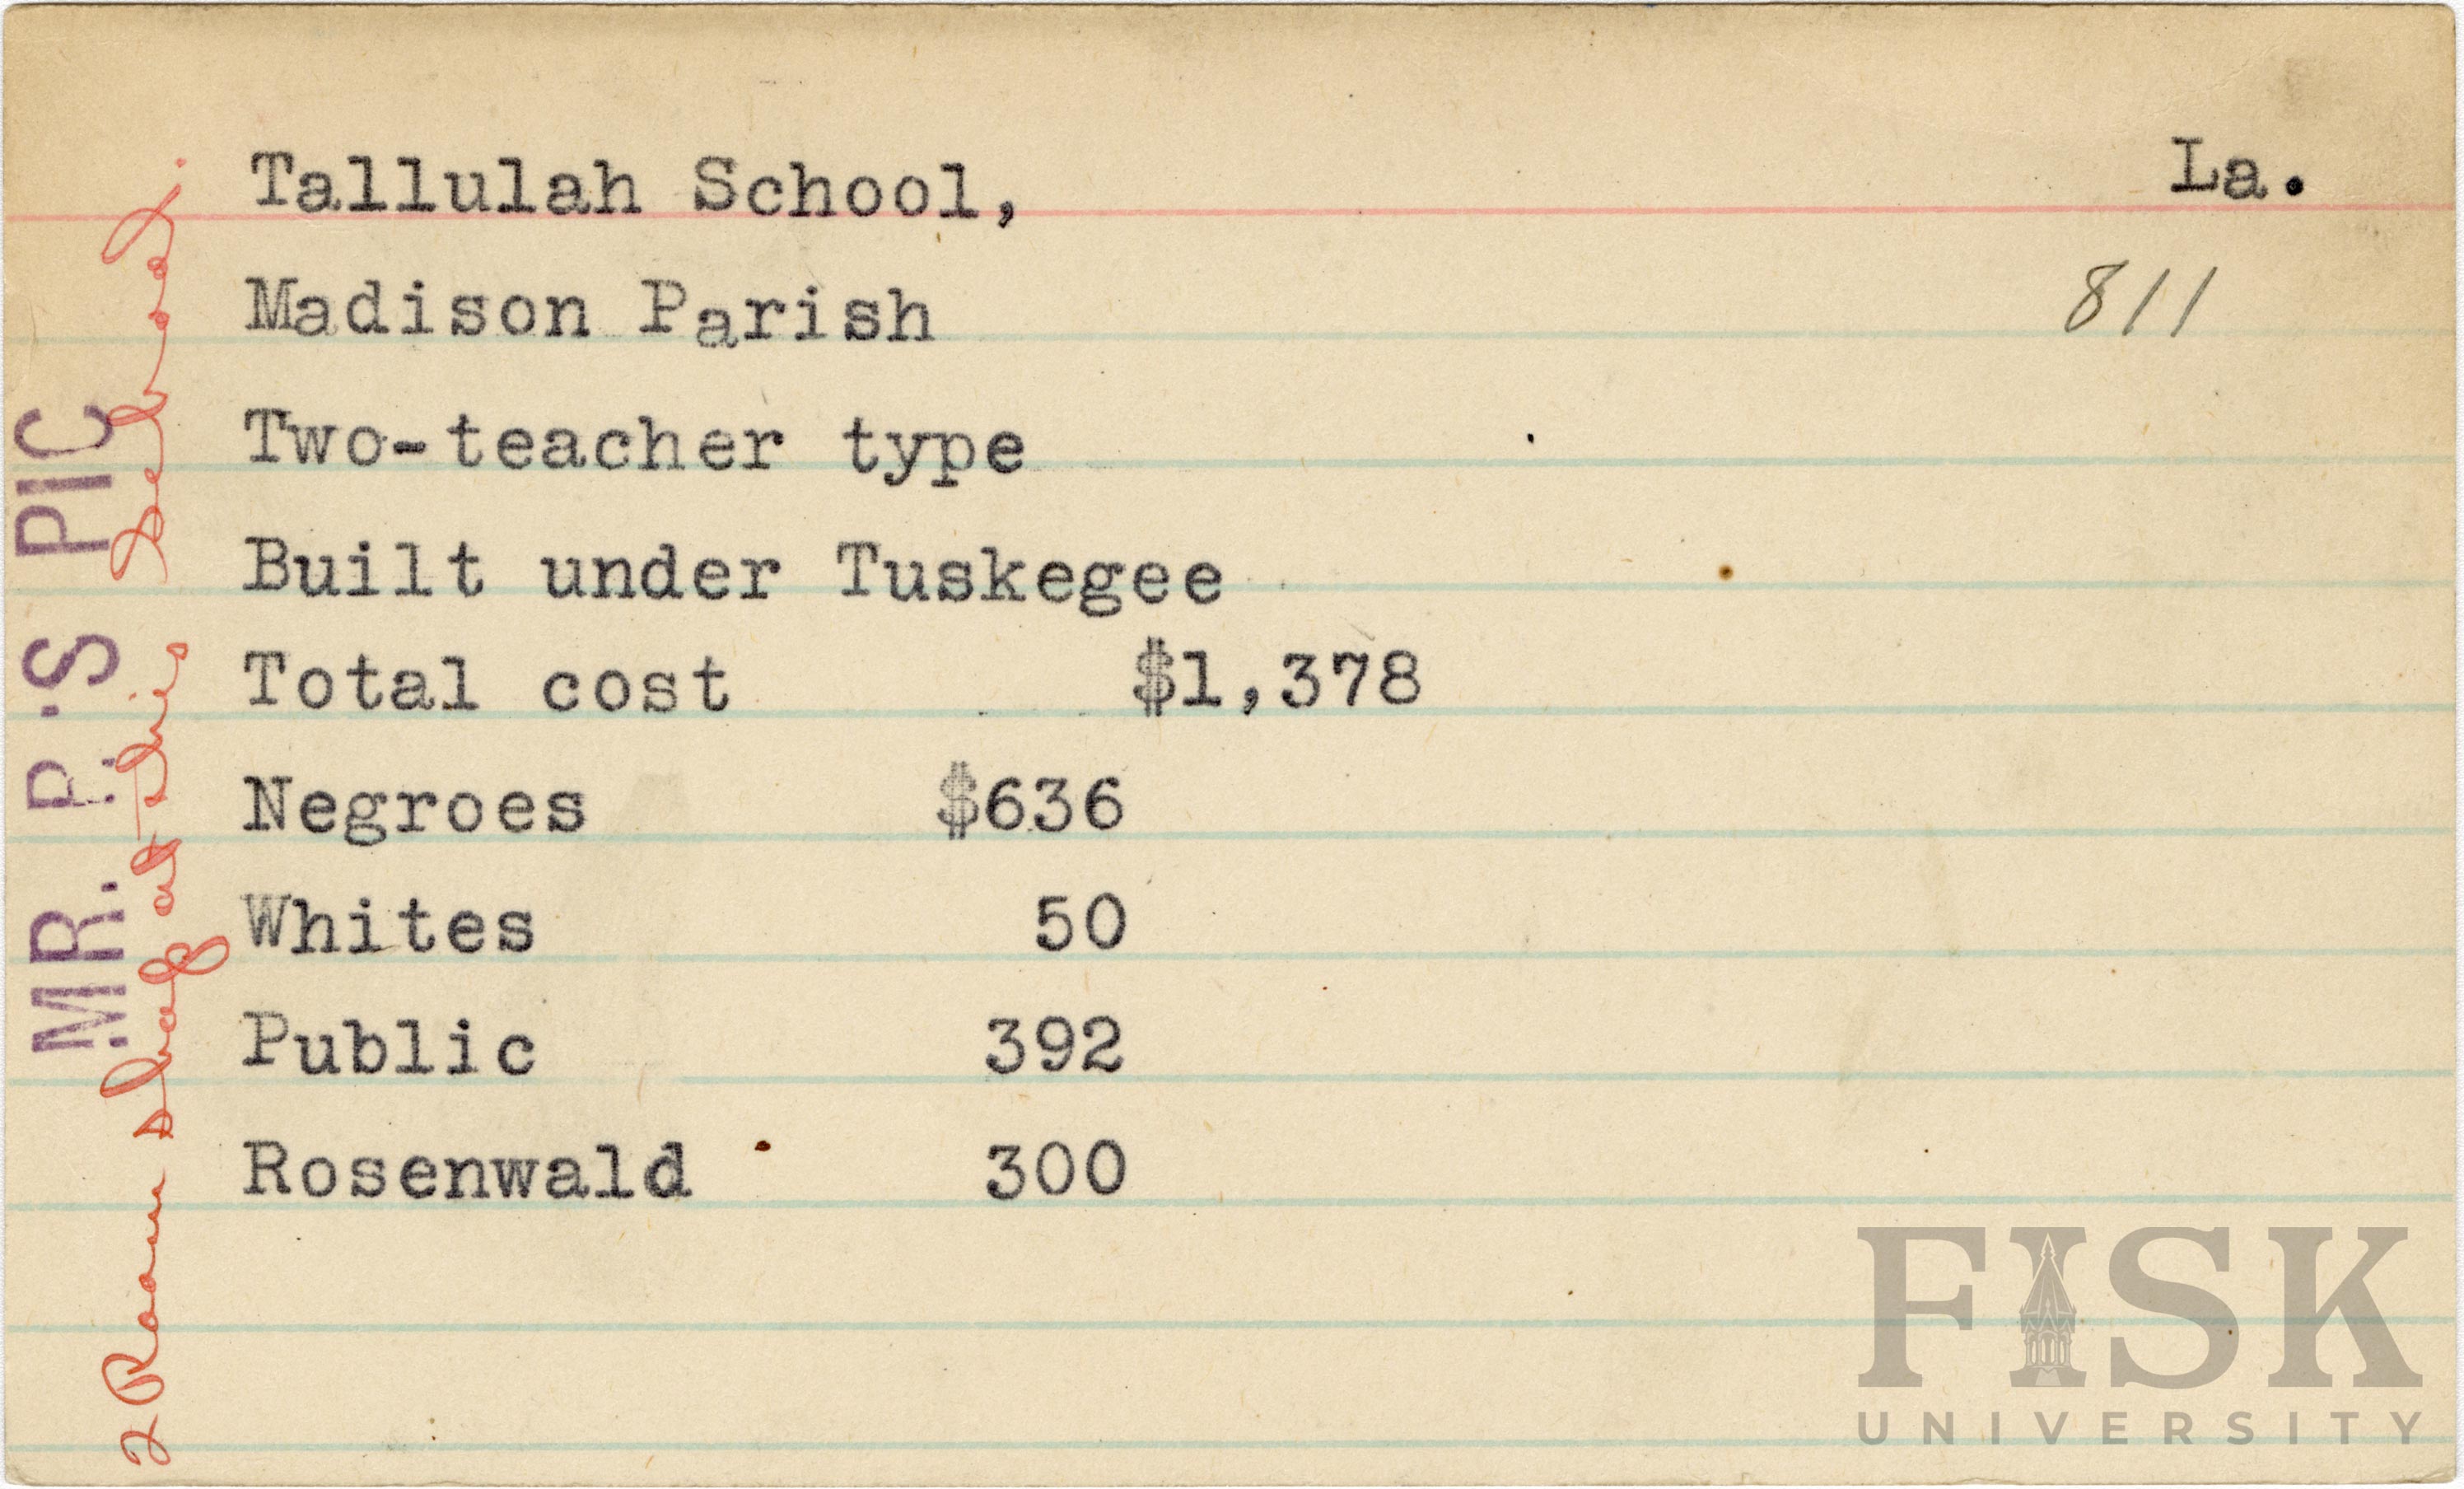 Tallulah School, La.
Madison Parish 811
Two-teacher type
Built under Tuskegee
Total cost $1,378
Negroes $636
Whites 50
Public 392
Rosenwald 300
MR. P.'S PIC
2 Room shop at this School.
FISK
UNIVERSITY